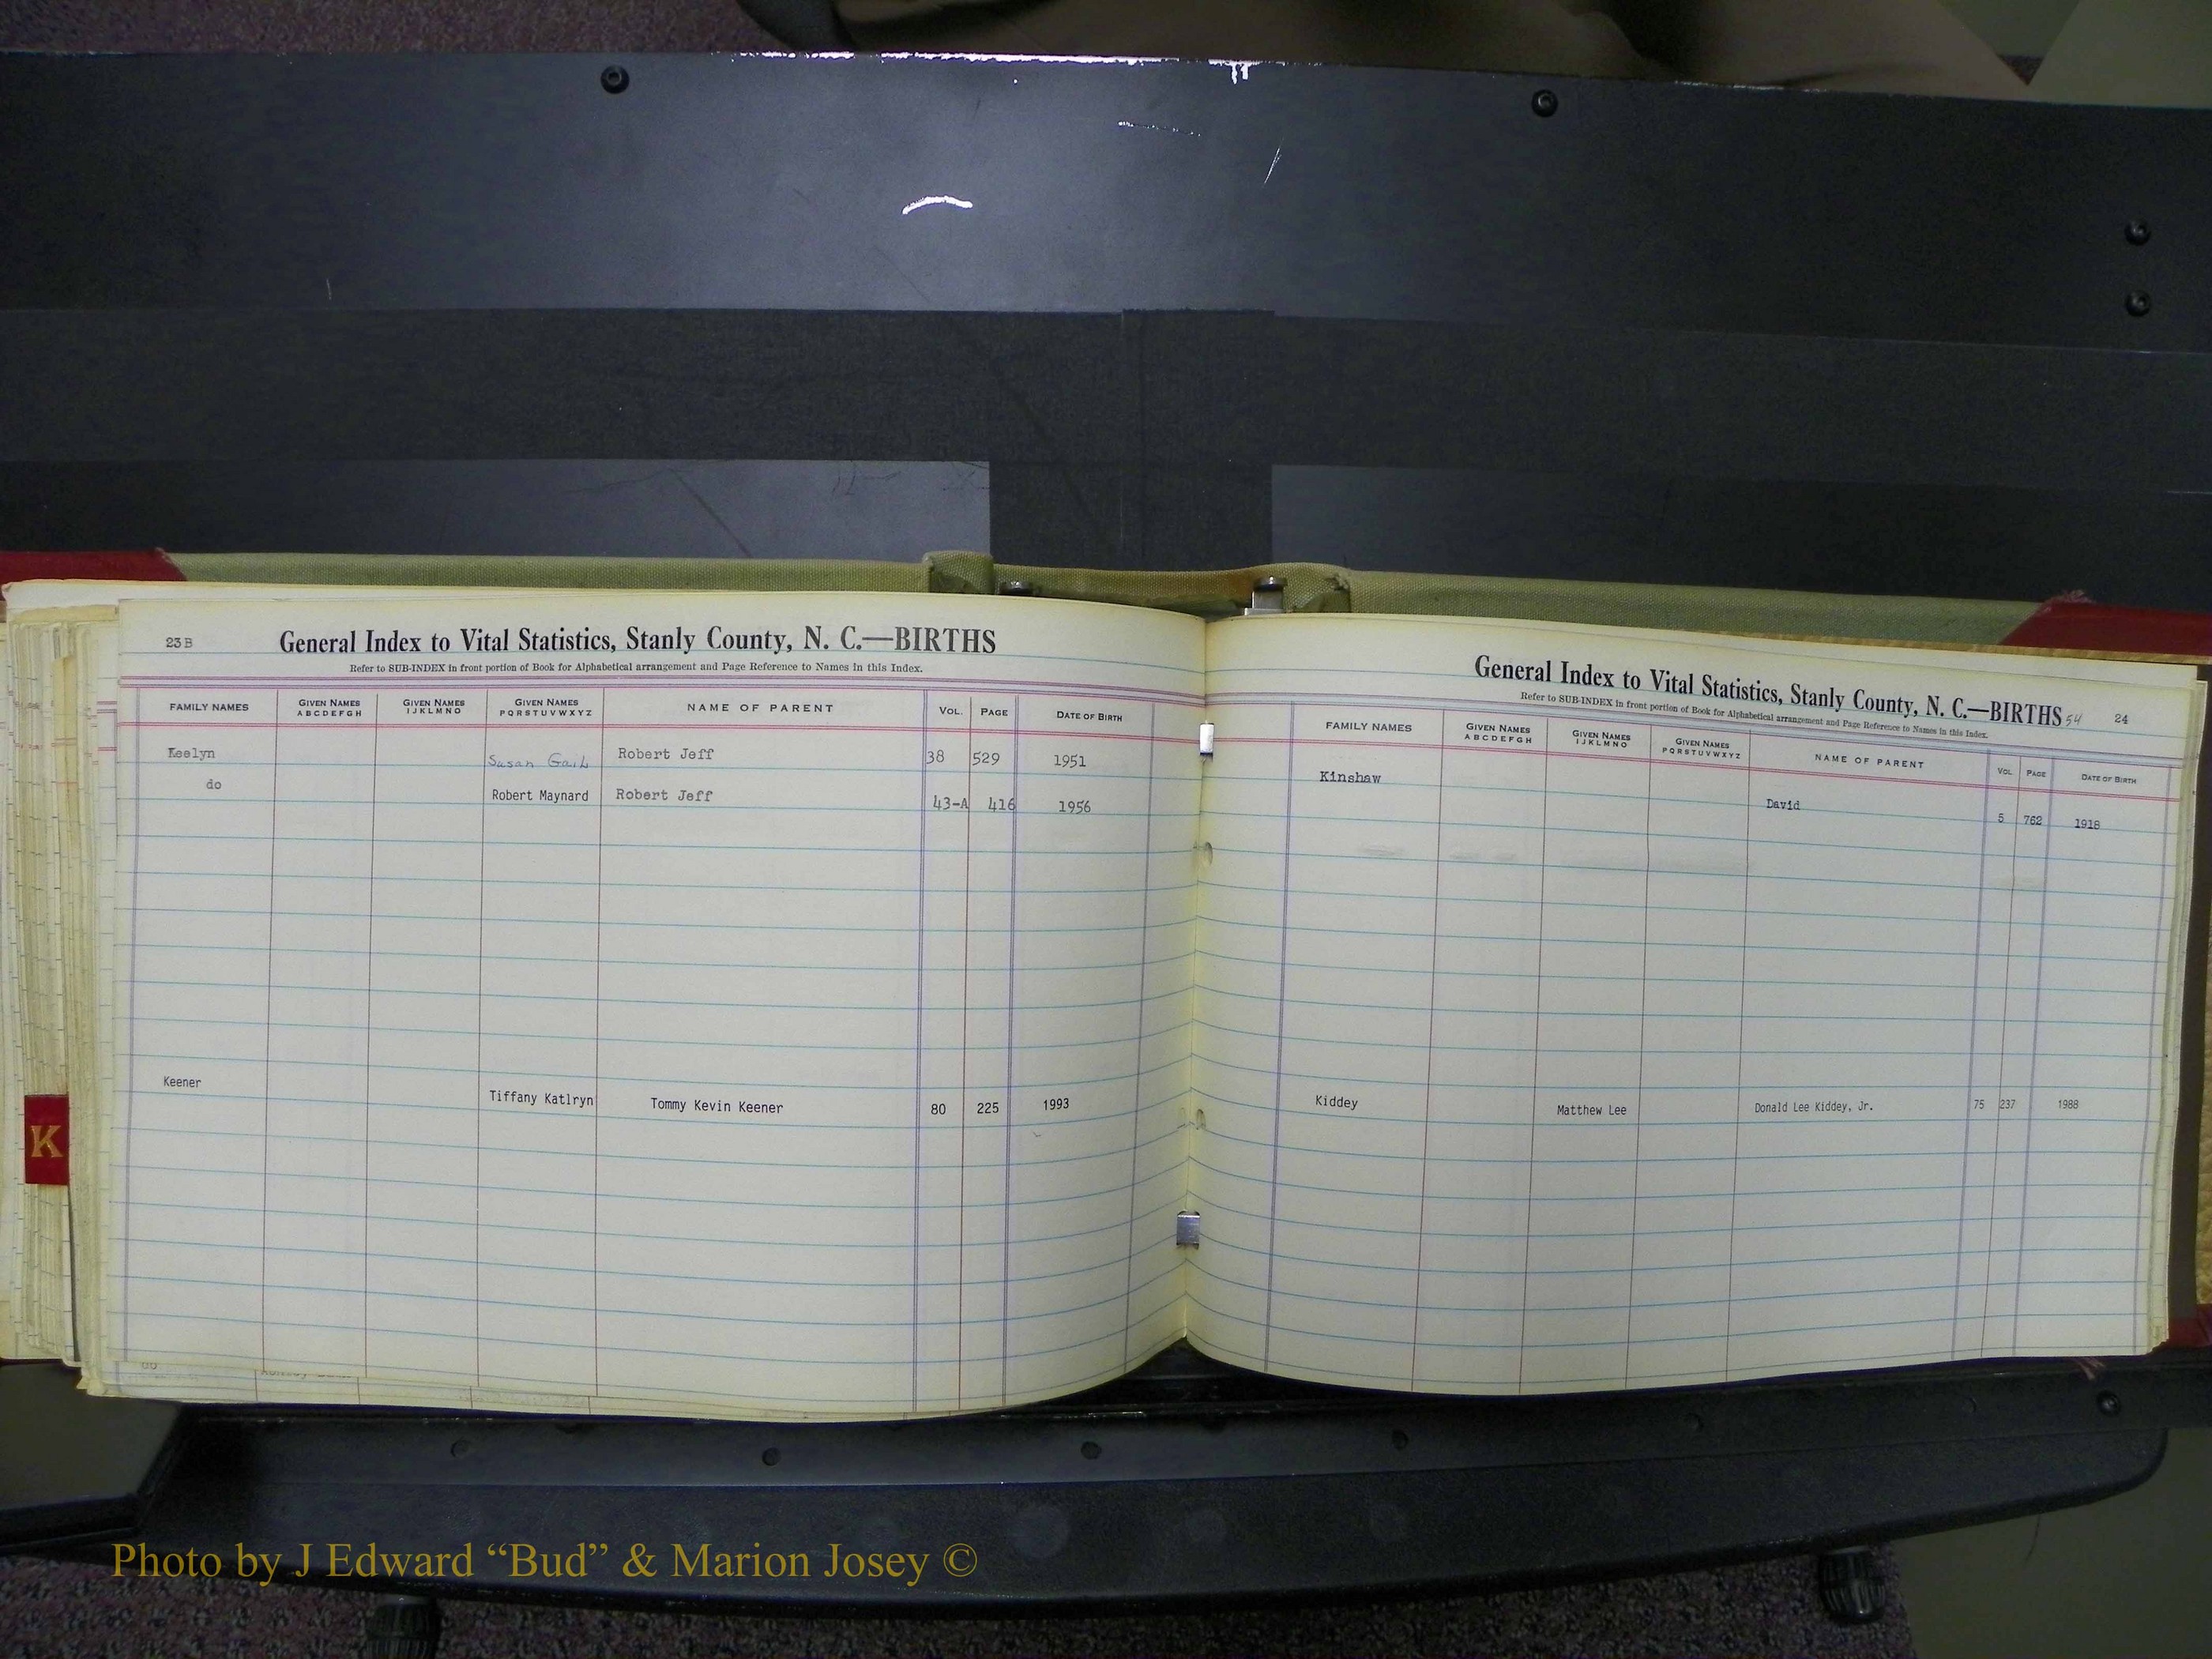 23 B
General Index to Vital Statistics, Stanly County, N. C.—BIRTHS
Refer to SUB-INDEX in front portion of Book for Alphabetical arrangement and Page Reference to Names in this Index.
FAMILY NAMES GIVEN NAMES ABCDEFGH GIVEN NAMES IJKLMNO GIVEN NAMES PQRSTUVWXYZ NAME OF PARENT VOL. PAGE DATE OF BIRTH
Keelyn Susan Gail Robert Jeff 38 529 1951
do Robert Maynard Robert Jeff 43-A 416 1956
Keener Tiffany Katlryn Tommy Kevin Keener 80 225 1993
K
General Index to Vital Statistics, Stanly County, N. C.—BIRTHS 54 24
Refer to SUB-INDEX in front portion of Book for Alphabetical arrangement and Page Reference to Names in this Index.
FAMILY NAMES GIVEN NAMES ABCDEFGH GIVEN NAMES IJKLMNO GIVEN NAMES PQRSTUVWXYZ NAME OF PARENT VOL. PAGE DATE OF BIRTH
Kinshaw David 5 762 1918
Kiddey Matthew Lee Donald Lee Kiddey, Jr. 75 237 1988
Photo by J Edward “Bud” & Marion Josey ©